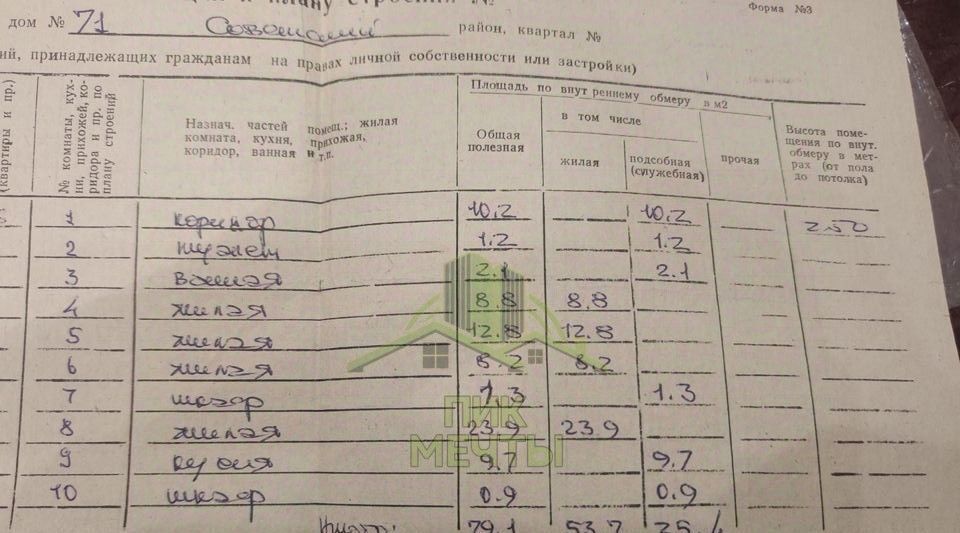 плану строений №
Форма №3
дом № 71 район, квартал №
ий, принадлежащих гражданам на правах личной собственности или застройки)
(квартиры и пр.)
№ комнаты, кух-
ни, прихожей, ко-
ридора и пр. по
плану строений
Назнач. частей помещ.; жилая
комната, кухня, прихожая,
коридор, ванная и т.п.
Площадь по внутреннему обмеру в м2
Общая
полезная
в том числе
жилая
подсобная
(служебная)
прочая
Высота поме-
щения по внут.
обмеру в мет-
рах (от пола
до потолка)
1 коридор 10,2 10,2 250
2 туалет 1.2 1.2
3 ванная 2.1 2.1
4 жилая 8.8 8.8
5 жилая 12.8 12.8
6 жилая 8.2 8.2
7 шкаф 1,3 1.3
8 жилая 23.9 23.9
9 кухня 9.7 9.7
10 шкаф 0.9 0.9
Итого: 79.1 53.7 25.4
ПИК
МЕЧТЫ